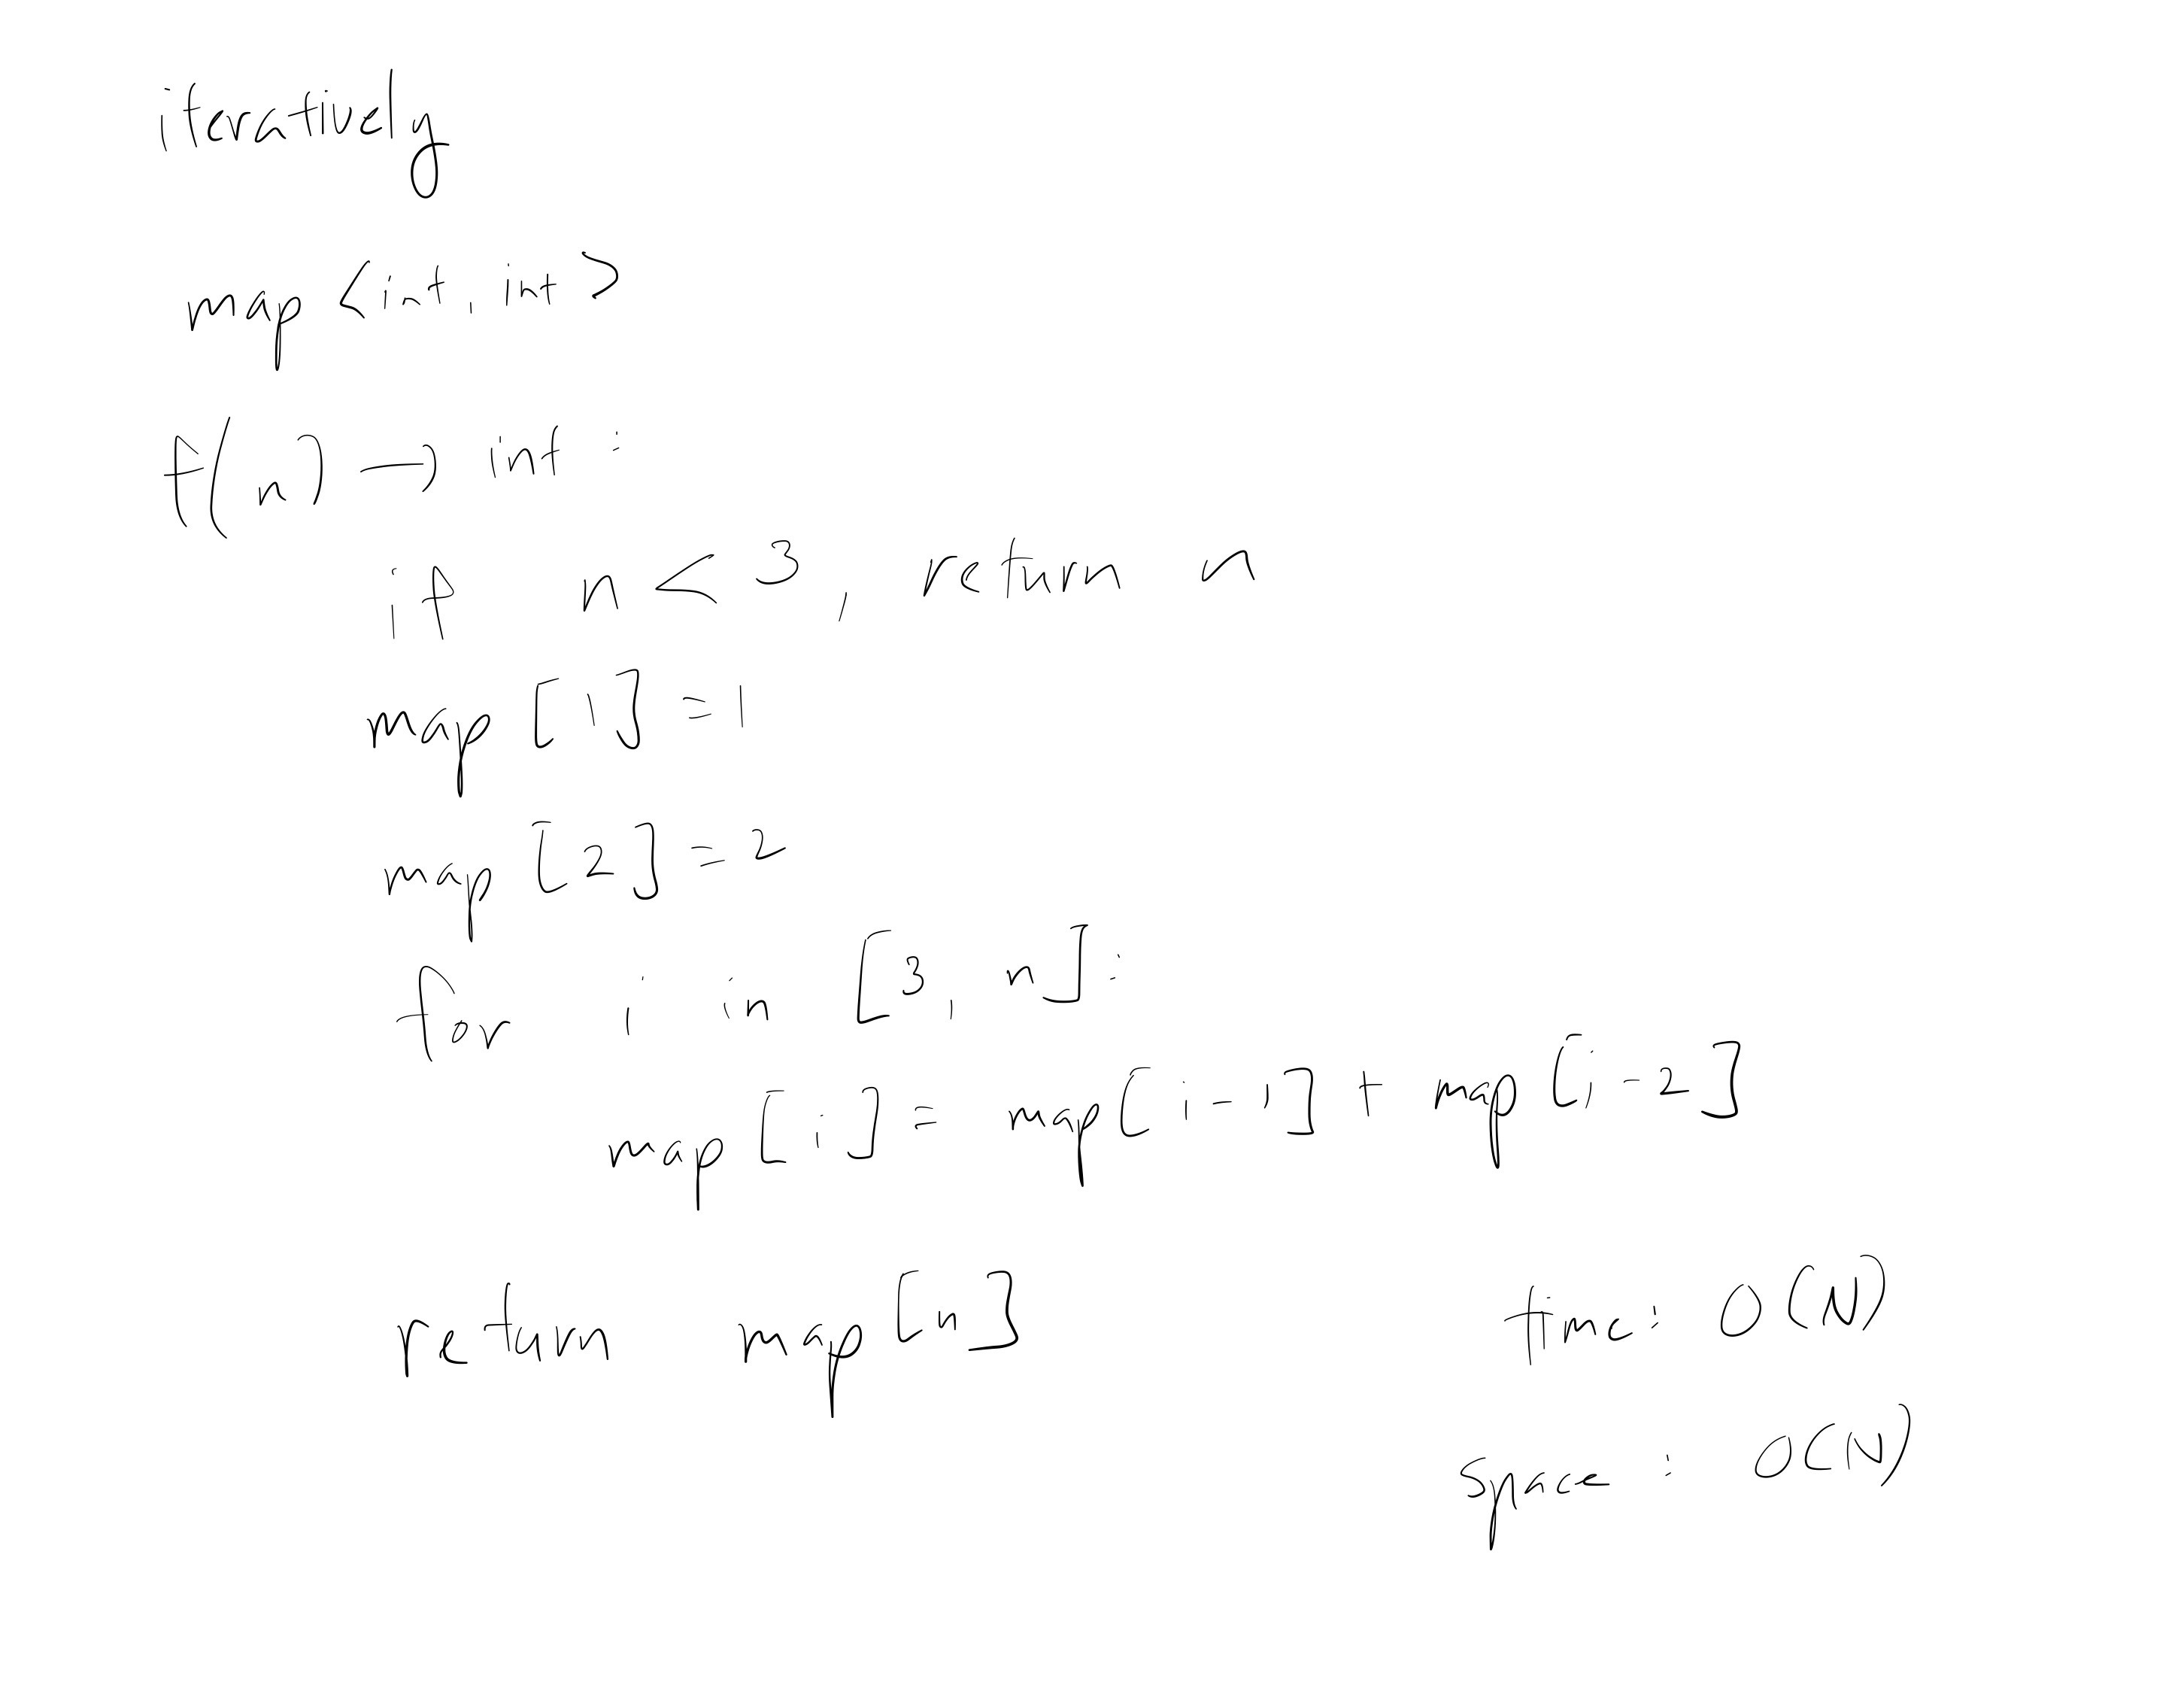 iteratively
map <int, int>
f(n) → int :
if n < 3, return n
map [1] = 1
map [2] = 2
for i in [3, n] :
map [i] = map [i-1] + map [i-2]
return map [n]
time: O(N)
space: O(N)